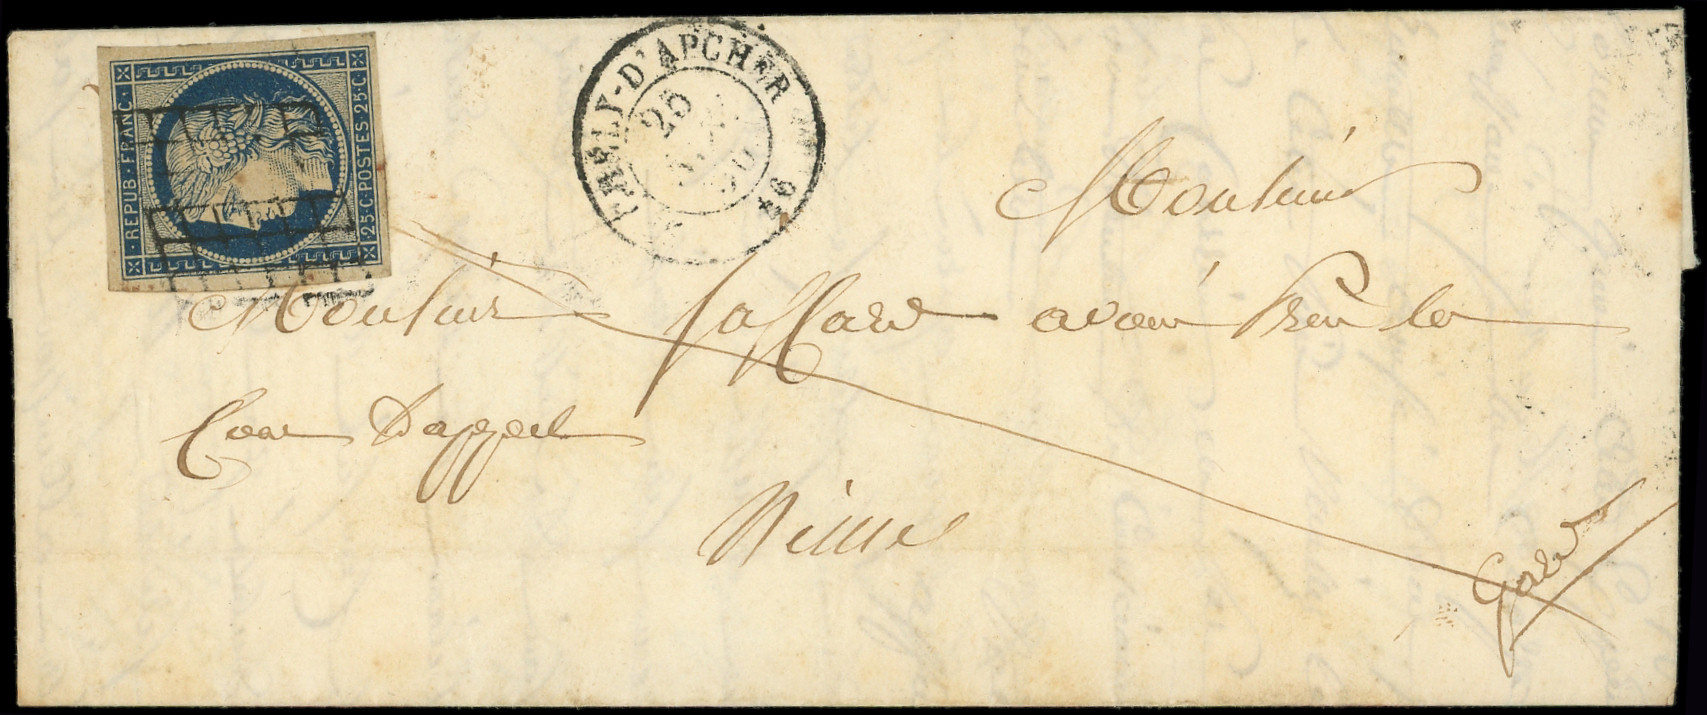 REPUB·FRANC·
25·C·POSTES·25·C·
-D'APCHER
25
46
Monsieur
Monsieur Laffare avoué près la
Cour D'appel
Nîmes
Gard